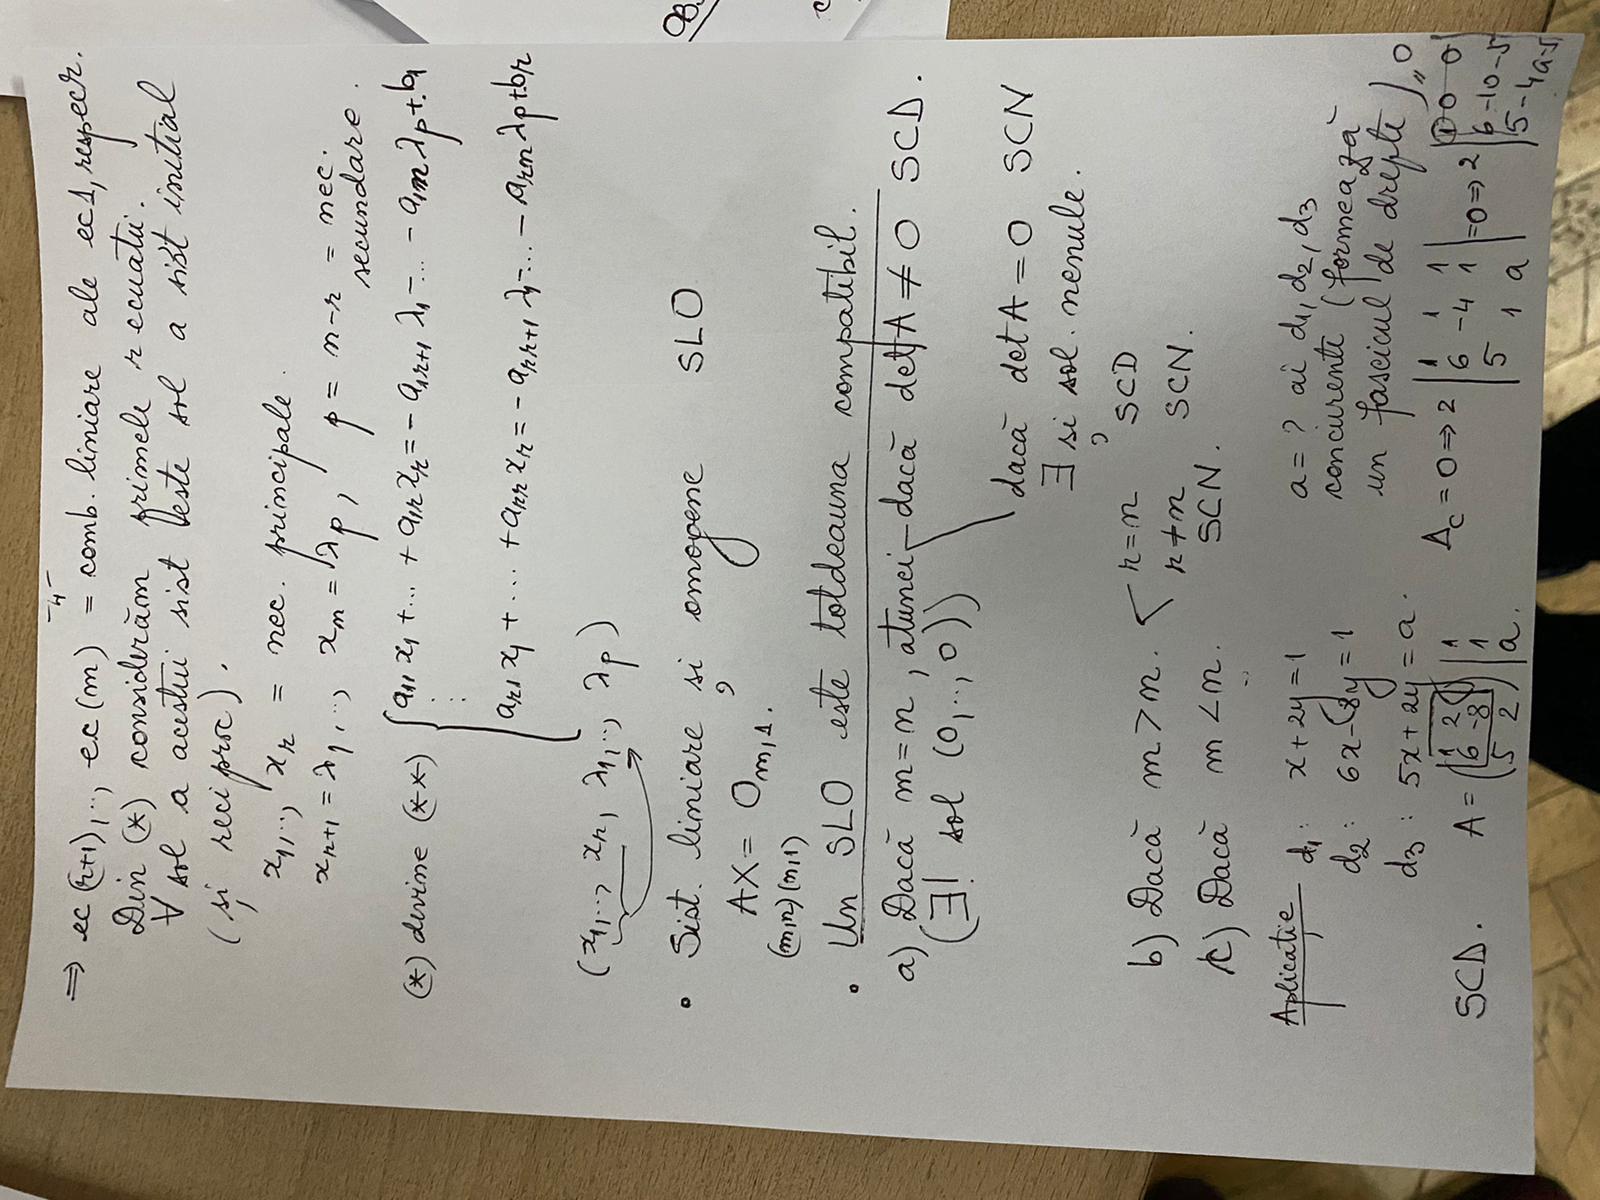 -4-
⇒ ec (r+1), .., ec (m) = comb. liniare ale ec1, respecr.
Din (*) considerăm primele r ecuatii.
∀ sol a acestui sist este sol a sist initial
(și reciproc).
x₁, .., xᵣ = nec. principale.
xᵣ₊₁ = λ₁, .., xₙ = λₚ, p = n-r = nec.
secundare.
(*) devine (**) { a₁₁ x₁ + ... + a₁ᵣ xᵣ = - a₁ᵣ₊₁ λ₁ - ... - a₁ₙ λₚ + b₁
⋮
aᵣ₁ x₁ + ... + aᵣᵣ xᵣ = - aᵣᵣ₊₁ λ₁ - ... - aᵣₙ λₚ + bᵣ
(x₁, .., xᵣ, λ₁, .., λₚ)
• Sist. liniare și omogene SLO
AX = O m,1.
(m,n) (n,1)
• Un SLO este totdeauna compatibil.
a) Dacă m = n, atunci dacă det A ≠ 0 SCD.
(∃! sol (0, .., 0))
dacă det A = 0 SCN
∃ și sol. nenule.
b) Dacă m > n. r = n SCD
r ≠ n SCN.
c) Dacă m < n. SCN.
Aplicație d₁: x + 2y = 1 a = ? aî d₁, d₂, d₃
d₂: 6x - 8y = 1 concurente (formează
d₃: 5x + 2y = a. un fascicul de drepte)
SCD. A = ( 1 2 | 1 Δc = 0 ⇒ 2 | 1 1 1 | = 0 ⇒ 2 | 1 0 0
6 -8 | 1 6 -4 1 6 -10 -5
5 2 ) | a. 5 1 a 5 -4 a-5 " 0